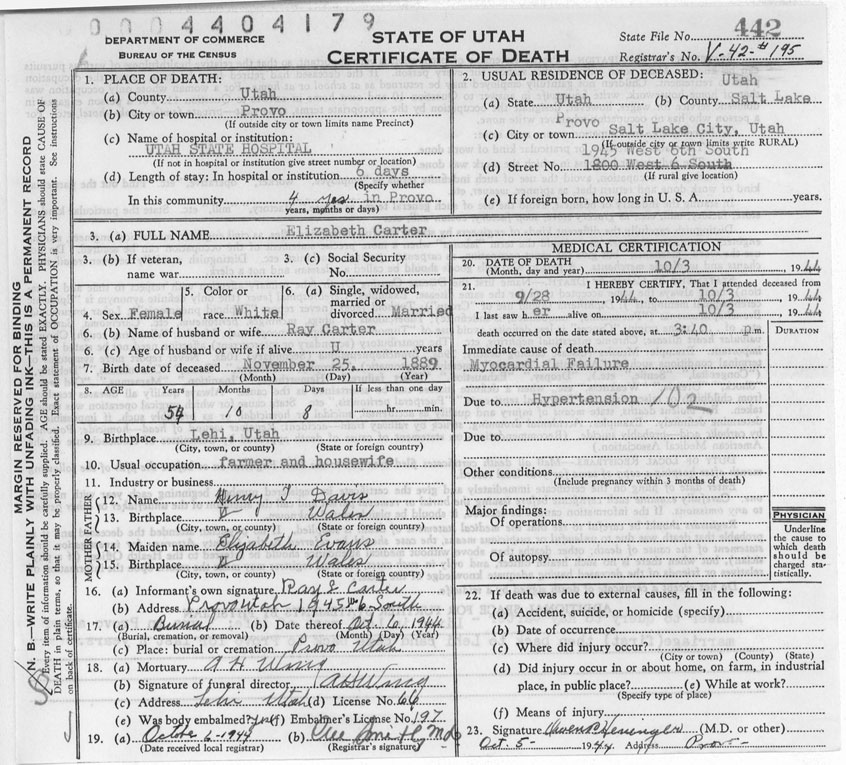 0004404179
DEPARTMENT OF COMMERCE
BUREAU OF THE CENSUS
STATE OF UTAH
CERTIFICATE OF DEATH
State File No. 442
Registrar's No. V-42-#195
MARGIN RESERVED FOR BINDING
N. B.—WRITE PLAINLY WITH UNFADING INK—THIS IS A PERMANENT RECORD
Every item of information should be carefully supplied. AGE should be stated EXACTLY. PHYSICIANS should state CAUSE OF
DEATH in plain terms, so that it may be properly classified. Exact statement of OCCUPATION is very important. See instructions
on back of certificate.
1. PLACE OF DEATH:
(a) County Utah
(b) City or town Provo
(If outside city or town limits name Precinct)
(c) Name of hospital or institution:
UTAH STATE HOSPITAL
(If not in hospital or institution give street number or location)
(d) Length of stay: In hospital or institution 6 days
(Specify whether
In this community 4 yrs in Provo
years, months or days)
2. USUAL RESIDENCE OF DECEASED:
Utah
(a) State Utah (b) County Salt Lake
Provo
(c) City or town Salt Lake City, Utah
(If outside city or town limits write RURAL)
1945 West 6th South
(d) Street No. 1800 West 6 South
(If rural give location)
(e) If foreign born, how long in U. S. A. years.
3. (a) FULL NAME Elizabeth Carter
3. (b) If veteran,
name war
3. (c) Social Security
No.
4. Sex Female
5. Color or
race White
6. (a) Single, widowed,
married or
divorced Married
6. (b) Name of husband or wife Ray Carter
6. (c) Age of husband or wife if alive U years
7. Birth date of deceased November 25, 1889
(Month) (Day) (Year)
8. AGE Years Months Days If less than one day
54 10 8 hr. min.
9. Birthplace Lehi, Utah
(City, town, or county) (State or foreign country)
10. Usual occupation farmer and housewife
11. Industry or business
FATHER
12. Name Henry T Davis
13. Birthplace Wales
(City, town, or county) (State or foreign country)
MOTHER
14. Maiden name Elizabeth Evans
15. Birthplace Wales
(City, town, or county) (State or foreign country)
16. (a) Informant's own signature Ray E Carter
(b) Address Provo Utah 1945 W 6 South
17. (a) Burial (b) Date thereof Oct. 6, 1944
(Burial, cremation, or removal) (Month) (Day) (Year)
(c) Place: burial or cremation Provo Utah
18. (a) Mortuary A H Wing
(b) Signature of funeral director A H Wing
(c) Address Lehi Utah (d) License No. 66
(e) Was body embalmed? yes (f) Embalmer's License No. 197
19. (a) Octbr 6-1944 (b)
(Date received local registrar) (Registrar's signature)
MEDICAL CERTIFICATION
20. DATE OF DEATH
(Month, day and year) 10/3 1944
21. I HEREBY CERTIFY, That I attended deceased from
9/28 1944, to 10/3 1944
I last saw her alive on 10/3 1944
death occurred on the date stated above, at 3:40 p.m.
DURATION
Immediate cause of death
Myocardial Failure
Due to Hypertension 102
Due to
Other conditions
(Include pregnancy within 3 months of death)
Major findings:
Of operations
Of autopsy
PHYSICIAN
Underline
the cause to
which death
should be
charged sta-
tistically.
22. If death was due to external causes, fill in the following:
(a) Accident, suicide, or homicide (specify)
(b) Date of occurrence
(c) Where did injury occur?
(City or town) (County) (State)
(d) Did injury occur in or about home, on farm, in industrial
place, in public place? (e) While at work?
(Specify type of place)
(f) Means of injury
23. Signature Owen P. Heninger (M.D. or other)
Oct. 5- 1944 Address Provo